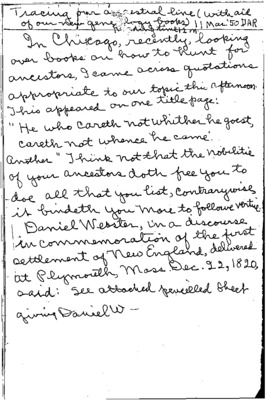 Tracing our ancestral line (with aid
of our new genealogy books) 11 Mar '50 DAR
In Chicago, recently, looking
over books on how to hunt for
ancestors, I came across quotations
appropriate to our topic this afternoon.
This appeared on one title page:
"He who careth not whither he goest,
careth not whence he came.
Another "Think not that the nobilitie
of your ancestors doth free you to
doe all that you list, contrarywise,
it bindeth you more to followe vertue.
1. Daniel Webster, in a discourse
in commemoration of the first
settlement of New England, delivered
at Plymouth, Mass Dec. 22, 1820,
said: See attached pencilled sheet
giving Daniel W—